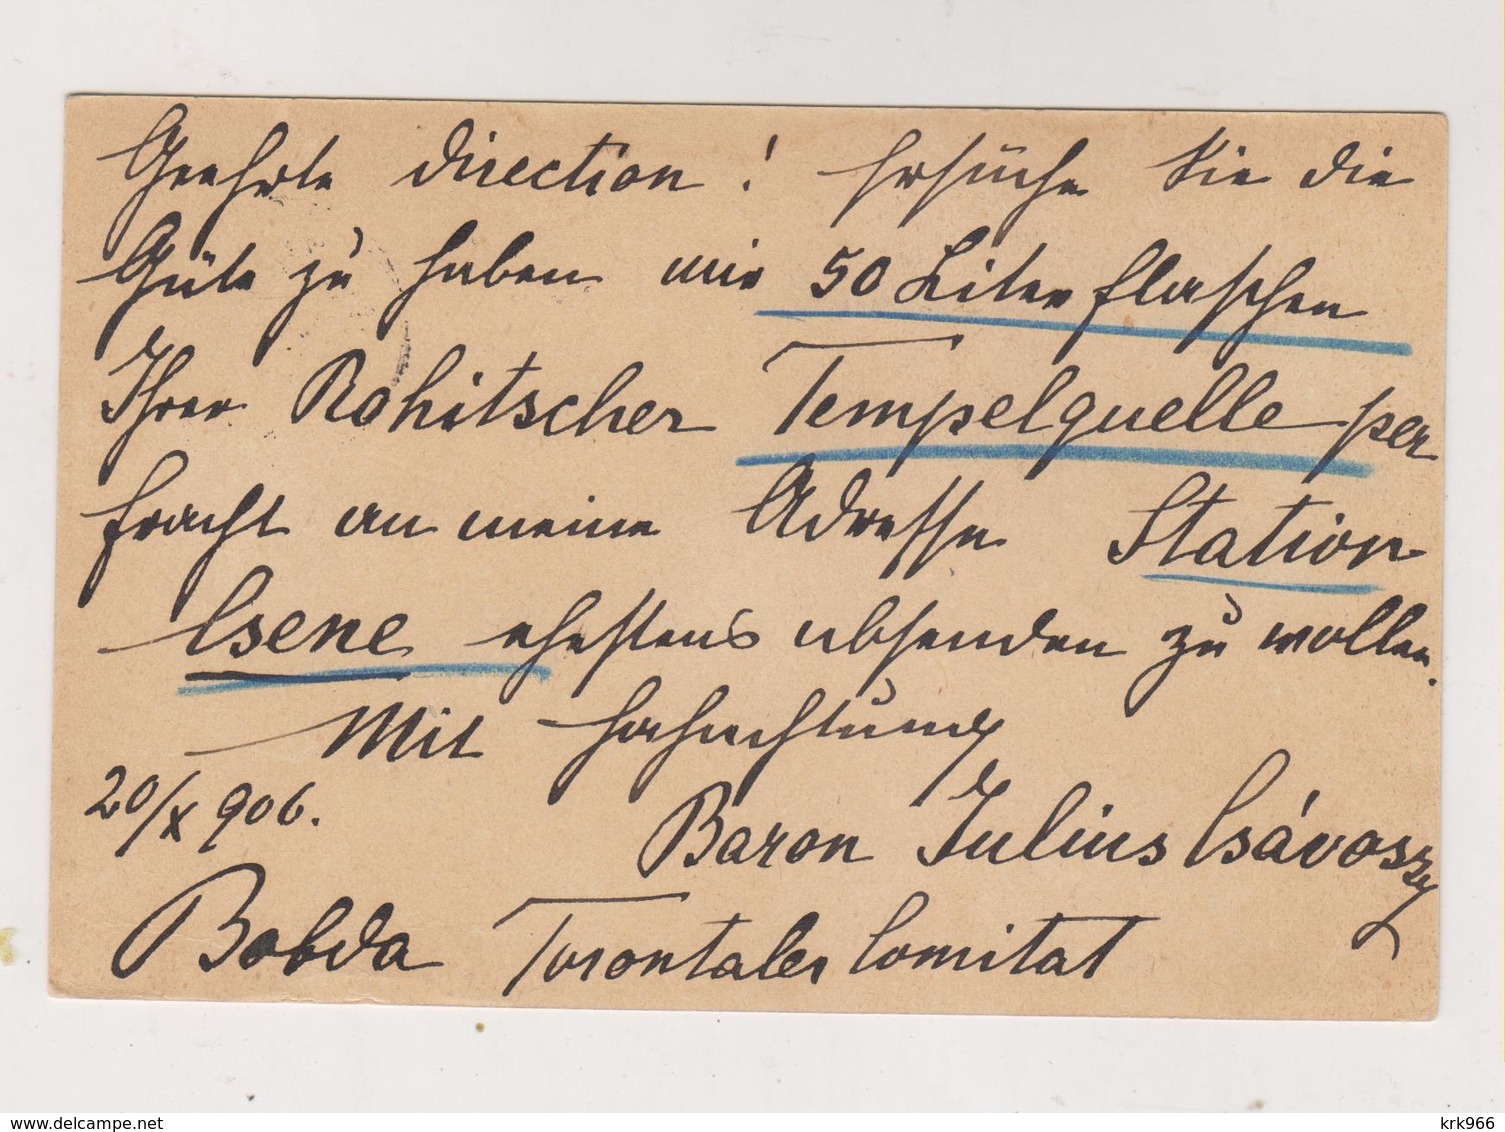 Geehrte Direction! Ersuche Sie die
Güte zu haben mir 50 Liter flaschen
Ihrer Rohitscher Tempelquelle per
Fracht an meine Adresse Station
Csene ehestens absenden zu wollen.
Mit Hochachtung
20/X 906.
Baron Julius Csávossy
Bobda Torontaler Comitat
krk966
delcampe.net